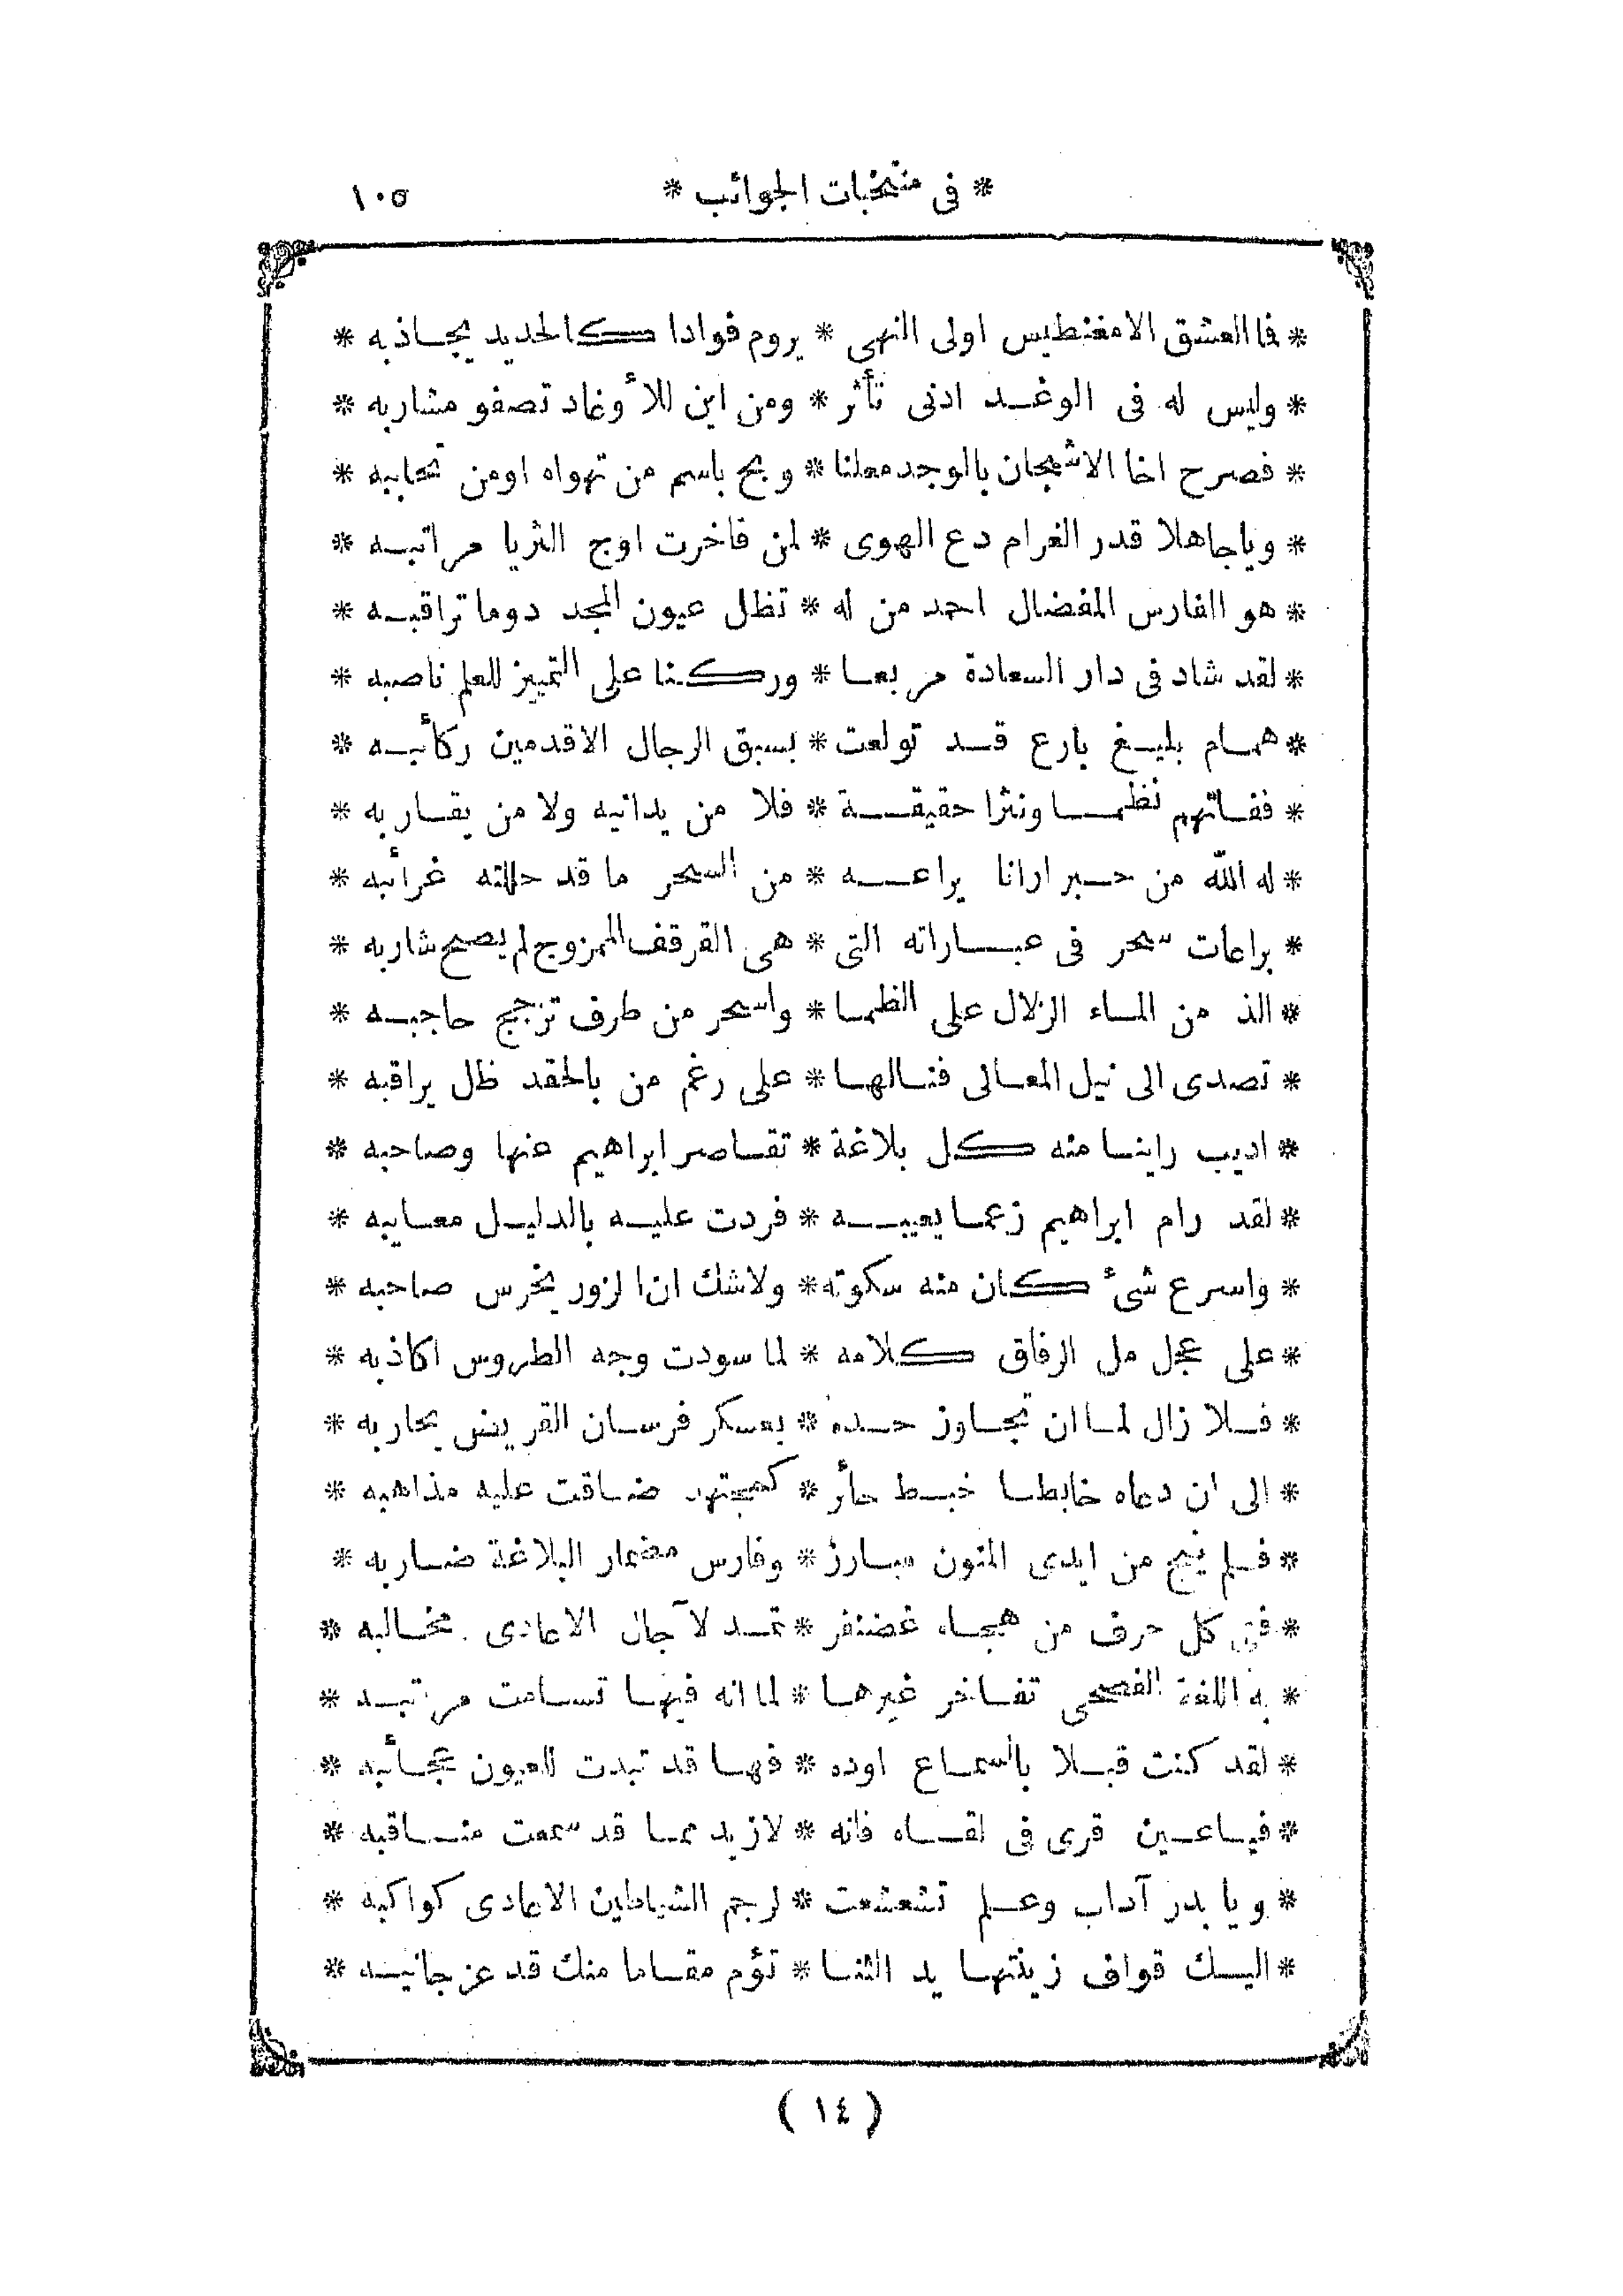 * فى منتخبات الجوائب * ١٠٥
* فما العشق الا مغنطيس اولى النهى * يروم فوادا كالحديد يجاذبه *
* وليس له فى الوغد ادنى تأثر * ومن اين للأوغاد تصفو مشاربه *
* فصرح اخا الاشجان بالوجد معلنا * وبح باسم من تهواه اومن تحابيه *
* وياجاهلا قدر الغرام دع الهوى * لمن فاخرت اوج الثريا مراتبه *
* هو الفارس المفضال احمد من له * تظل عيون المجد دوما تراقبه *
* لقد شاد فى دار السعادة مربعا * وركنا على التمييز للعلم ناصبه *
* همام بليغ بارع قد تولعت * بسبق الرجال الاقدمين ركأبه *
* ففاتهم نظما ونثرا حقيقة * فلا من يدانيه ولا من يقاربه *
* له الله من حبر ارانا يراعه * من السحر ما قد حللته غرأبه *
* براعات سحر فى عباراته التى * هى القرقف الممزوج لم يصح شاربه *
* الذ من الماء الزلال على الظما * واسحر من طرف تزجج حاجبه *
* تصدى الى نيل المعالى فنالها * على رغم من بالحقد ظل يراقبه *
* اديب راينا منه كل بلاغة * تقاصر ابراهيم عنها وصاحبه *
* لقد رام ابراهيم زعما يعيبه * فردت عليه بالدليل معايبه *
* واسرع شئ كان منه سكوته * ولاشك ان الزور يخرس صاحبه *
* على عجل مل الرفاق كلامه * لما سودت وجه الطروس اكاذبه *
* فلا زال لما ان تجاوز حده * بعسكر فرسان القريض يحاربه *
* الى ان دعاه خابطا خبط حأر * كمجتهد ضاقت عليه مذاهبه *
* فلم ينج من ايدى المنون مبارز * وفارس مضمار البلاغة ضاربه *
* فى كل حرف من هجاه غضنفر * تمد لآجال الاعادى مخالبه *
* به اللغة الفصحى تفاخر غيرها * لما انه فيها تسامت مراتبه *
* لقد كنت قبلا بالسماع اوده * فها قد تبدت للعيون عجأبه *
* فياعين قرى فى لقاه فانه * لازيد مما قد سمعت مناقبه *
* ويا بدر آداب وعلم تشعشعت * لرجم الشياطين الاعادى كواكبه *
* اليك قواف زينتها يد الثنا * تؤم مقاما منك قد عز جانبه *
( ١٤ )